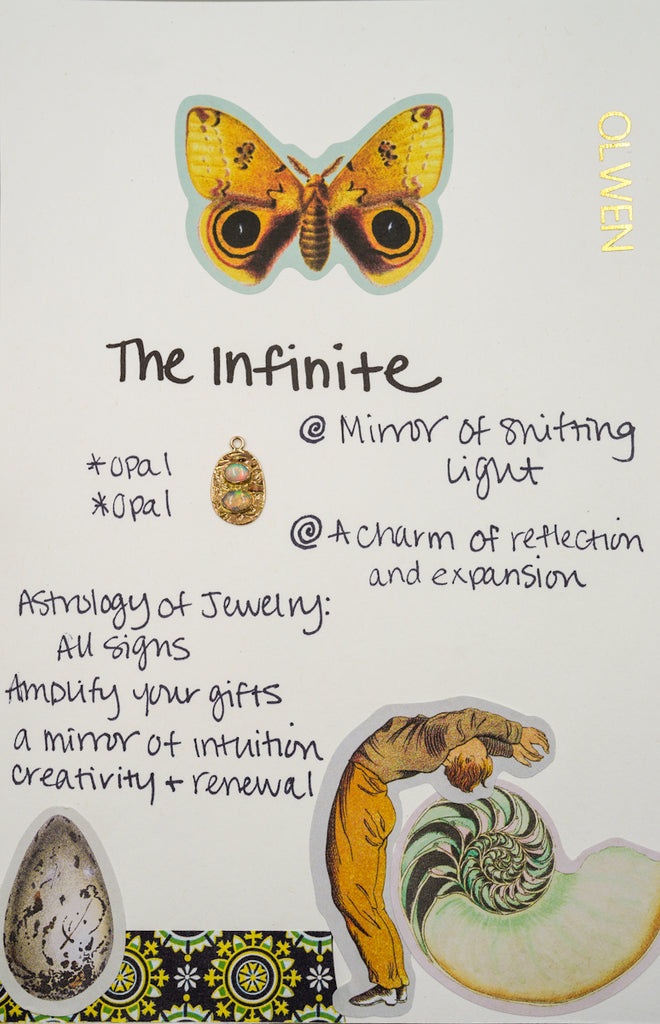 OLWEN
The Infinite
*opal
*Opal
@ Mirror of shifting
light
@ A charm of reflection
and expansion
Astrology of Jewelry:
All signs
Amplify your gifts
a mirror of intuition
creativity + renewal